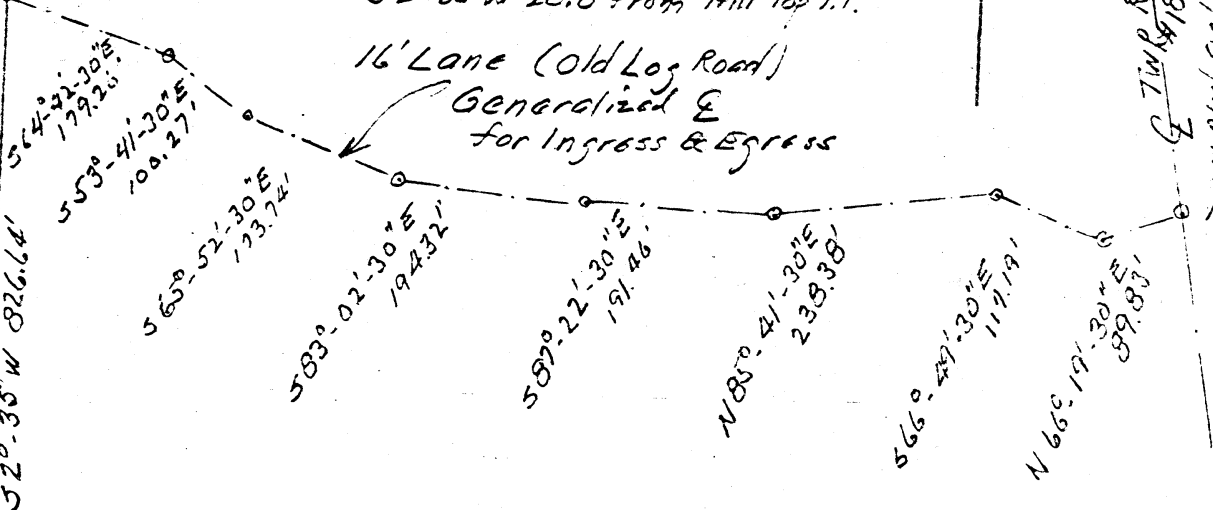 16' Lane (Old Log Road)
Generalized ℄
for Ingress & Egress
S64°-42'-30"E
179.26'
S53°-41'-30"E
100.27'
S65°-52'-30"E
173.74'
S83°-02'-30"E
194.32'
S87°-22'-30"E
191.46'
N85°-41'-30"E
238.38'
S66°-49'-30"E
117.19'
N66°-19'-30"E
89.83'
S2°-35'W 826.64'
℄ TWP. R